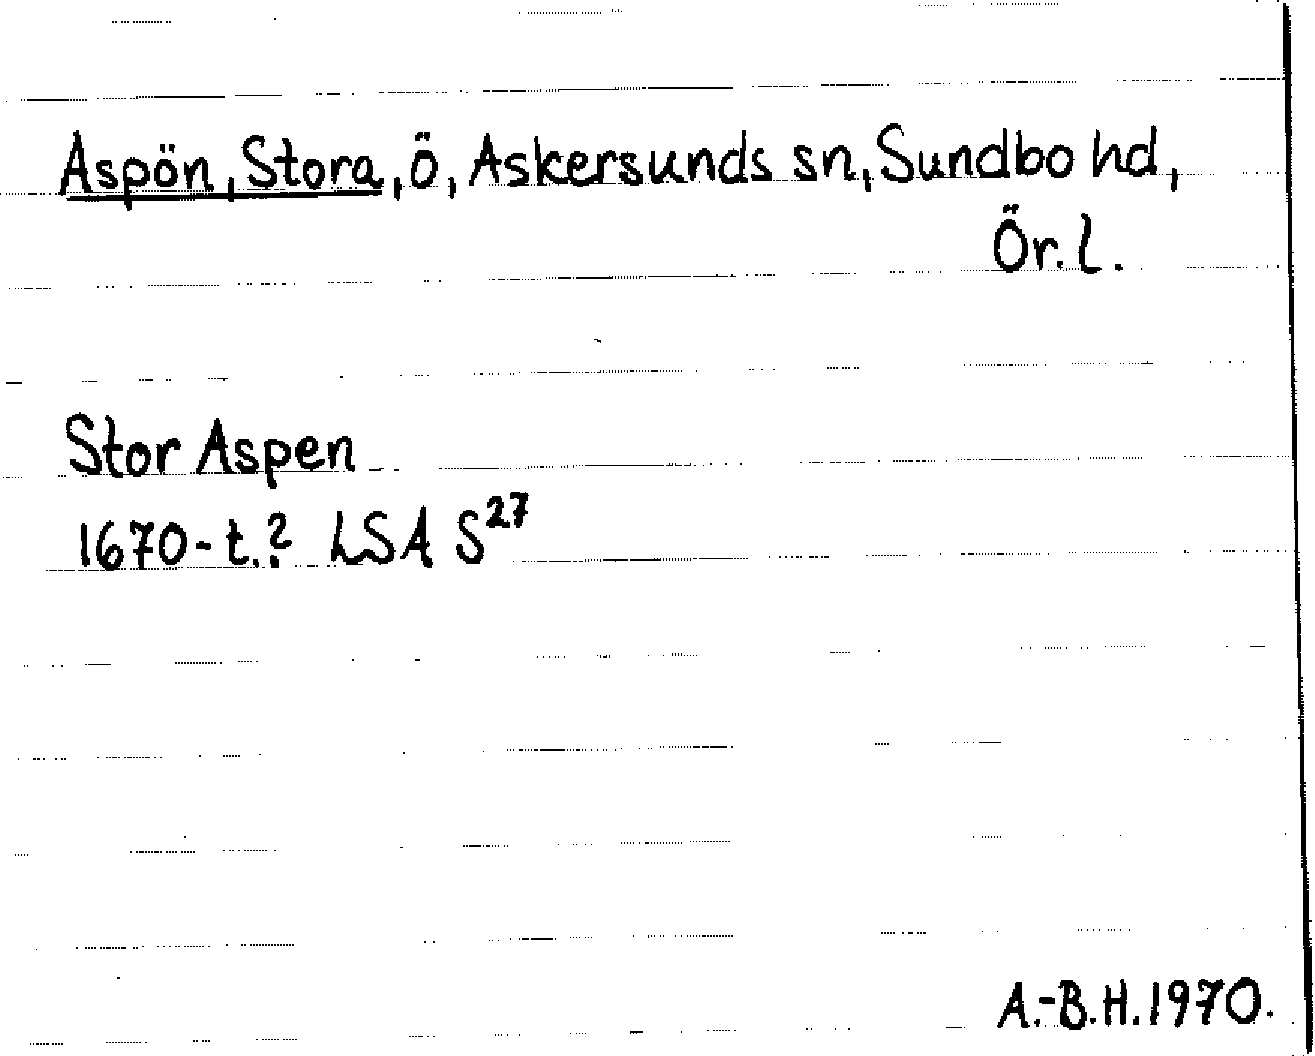 Aspön, Stora, ö, Askersunds sn, Sundbo hd,
Ör. l.
Stor Aspen
1670-t.? LSA S²⁷
A.-B.H. 1970.